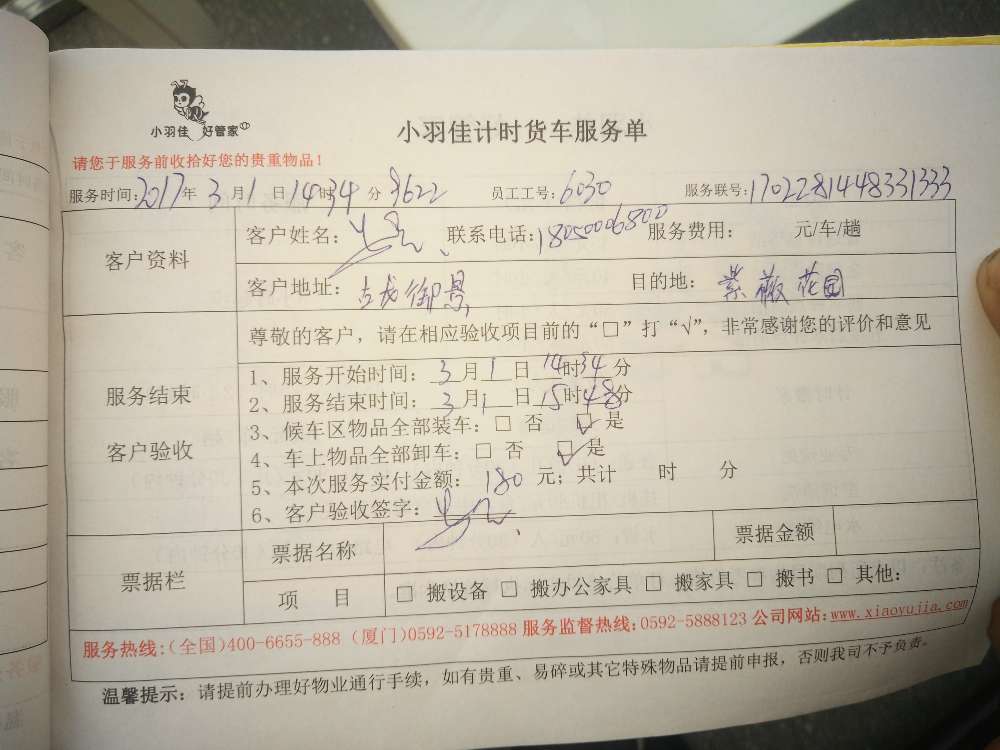 小羽佳 好管家
小羽佳计时货车服务单
请您于服务前收拾好您的贵重物品！
服务时间：2017年 3月1日14时34分 8622 员工工号：6030 服务联号：1702281448331333
客户资料 客户姓名： 联系电话：18050006800 服务费用： 元/车/趟
客户地址：古龙御景 目的地：紫薇花园
尊敬的客户，请在相应验收项目前的“□”打“√”，非常感谢您的评价和意见
服务结束
客户验收
1、服务开始时间：3月1日14时34分
2、服务结束时间：3月1日15时48分
3、候车区物品全部装车：□ 否 ☑是
4、车上物品全部卸车：□ 否 ☑是
5、本次服务实付金额：180元；共计 时 分
6、客户验收签字：
票据栏 票据名称 票据金额
项 目 □ 搬设备 □ 搬办公家具 □ 搬家具 □ 搬书 □ 其他：
服务热线：（全国）400-6655-888（厦门）0592-5178888 服务监督热线：0592-5888123 公司网站：www.xiaoyujia.com
温馨提示：请提前办理好物业通行手续，如有贵重、易碎或其它特殊物品请提前申报，否则我司不予负责。